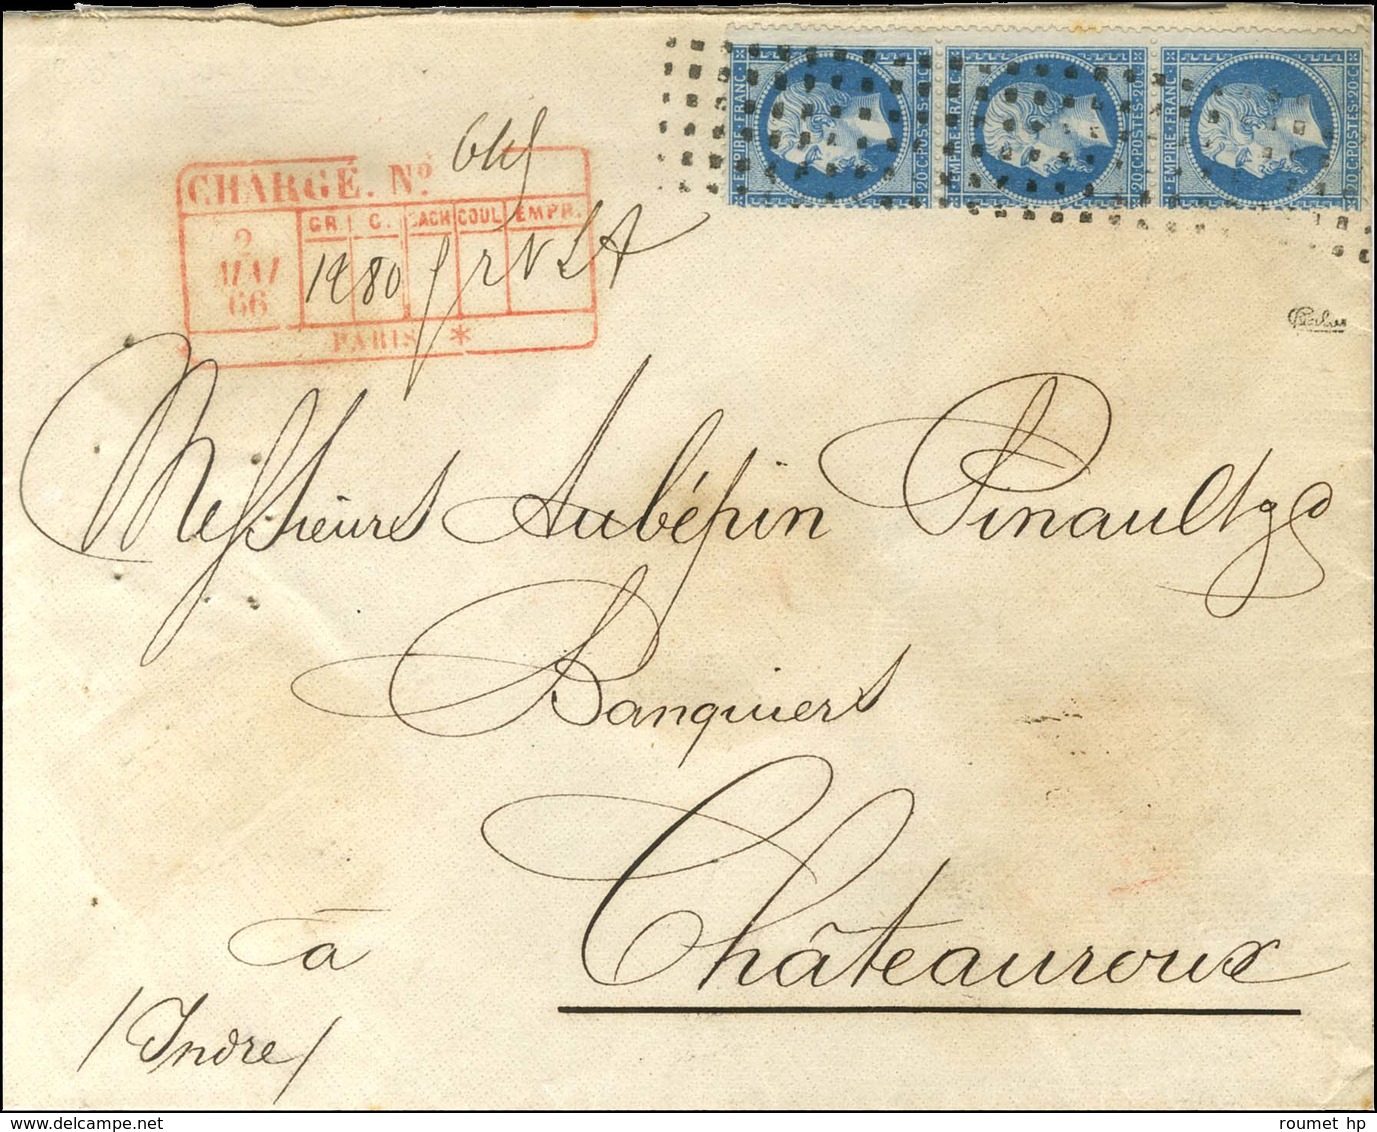 EMPIRE FRANC. 20 C. POSTES 20 C.
EMPIRE FRANC. 20 C. POSTES 20 C.
EMPIRE FRANC. 20 C. POSTES 20 C.
CHARGÉ. Nº
GR. C. CACH COUL EMPR.
2
MAI
66
PARIS *
Messieurs Aubépin Pinault & Co
Banquiers
à Châteauroux
(Indre)
roumet hp